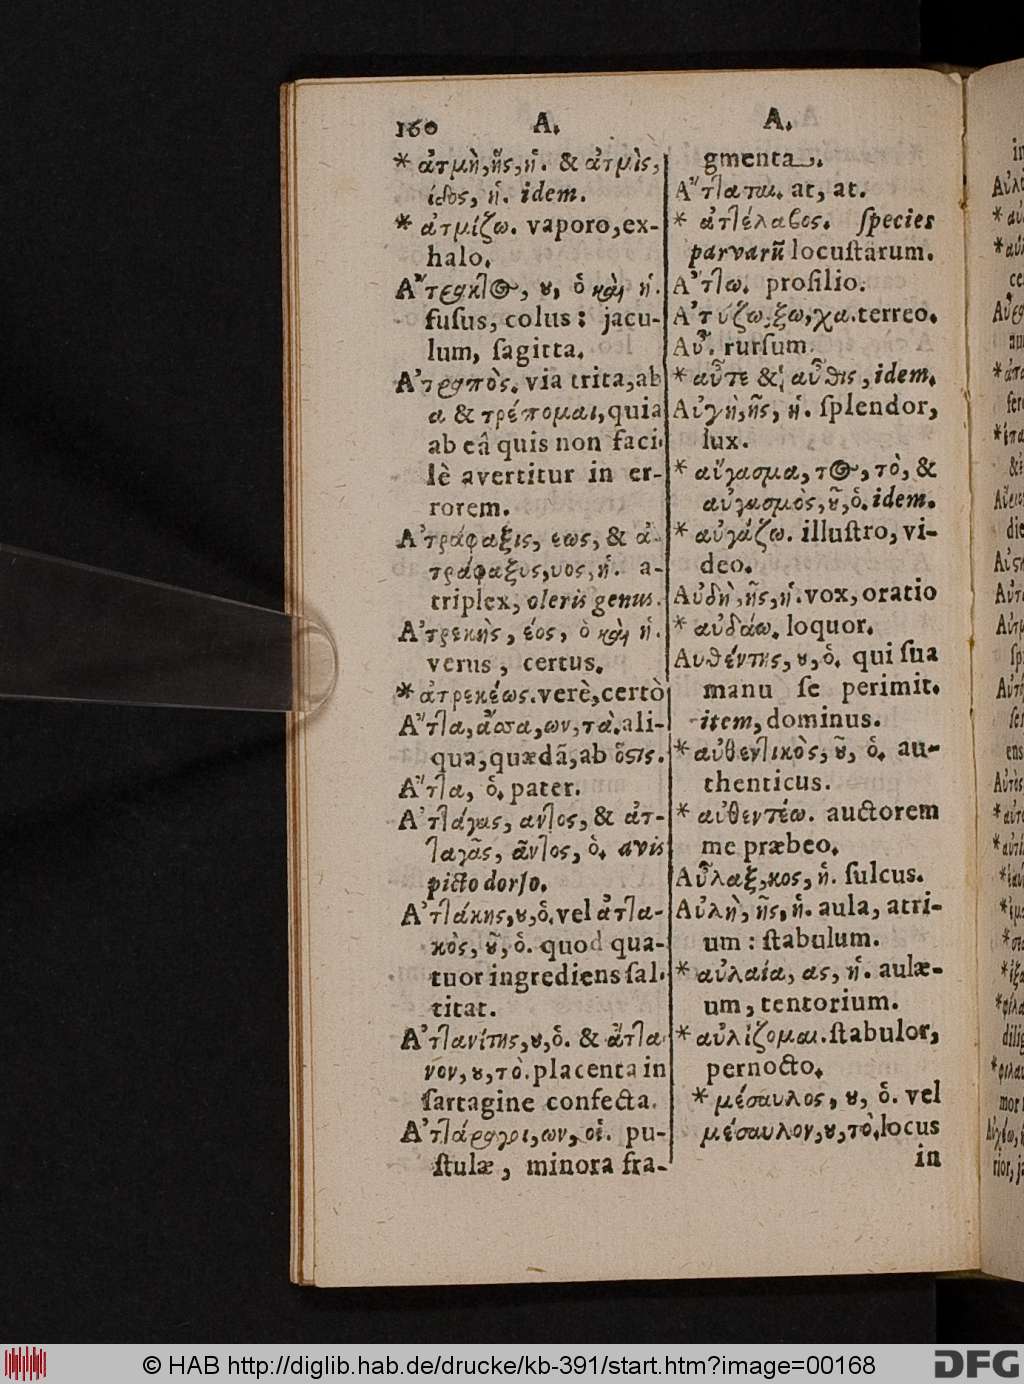 160 A. A.
* ἀτμὴ, ῆς, ἡ. & ἀτμὶς,
ίδος, ἡ. idem.
* ἀτμίζω. vaporo, ex-
halo.
Α῎τρακτος, ου, ὁ καὶ ἡ.
fuſus, colus: jacu-
lum, ſagitta.
Α᾿τραπὸς. via trita, ab
α & τρέπομαι, quia
ab eâ quis non faci-
lè avertitur in er-
rorem.
Α᾿τράφαξις, εως, & ἀ-
τράφαξυς, υος, ἡ. a-
triplex, oleris genus.
Α᾿τρεκὴς, έος, ὁ καὶ ἡ.
verus, certus.
* ἀτρεκέως. verè, certò
Α῎ττα, ἄσσα, ων, τὰ. ali-
qua, quædã, ab ὅστις.
Α῎ττα, ὁ. pater.
Α᾿ττάγας, αντος, & ἀτ-
ταγᾶς, ᾶντος, ὁ. avis
picto dorſo.
Α᾿ττάκης, ου, ὁ. vel ἀττα-
κὸς, οῦ, ὁ. quod qua-
tuor ingrediens ſal-
titat.
Α᾿ττανίτης, ου, ὁ. & ἄττα-
νον, ου, τὸ. placenta in
ſartagine confecta.
Α᾿ττάραγοι, ων, οἱ. pu-
ſtulæ, minora fra-
gmenta.
Α῎τταται. at, at.
* ἀττέλαβος. ſpecies
parvarũ locuſtarum.
Α῎ττω. proſilio.
Α᾿τύζω. ξω, χα. terreo.
Αὖ. rurſum.
* αὖτε & αὖθις, idem.
Αὐγὴ, ῆς, ἡ. ſplendor,
lux.
* αὔγασμα, τος, τὸ, &
αὐγασμὸς, οῦ, ὁ. idem.
* αὐγάζω. illuſtro, vi-
deo.
Αὐδὴ, ῆς, ἡ. vox, oratio
* αὐδάω. loquor.
Αυθέντης, ου, ὁ. qui ſua
manu ſe perimit.
item, dominus.
* αὐθεντικὸς, οῦ, ὁ. au-
thenticus.
* αὐθεντέω. auctorem
me præbeo.
Αὖλαξ, κος, ἡ. ſulcus.
Αὐλὴ, ῆς, ἡ. aula, atri-
um: ſtabulum.
* αὐλαία, ας, ἡ. aulæ-
um, tentorium.
* αὐλίζομαι. ſtabulor,
pernocto.
* μέσαυλος, ου, ὁ. vel
μέσαυλον, ου, τὸ. locus
in
© HAB http://diglib.hab.de/drucke/kb-391/start.htm?image=00168
DFG